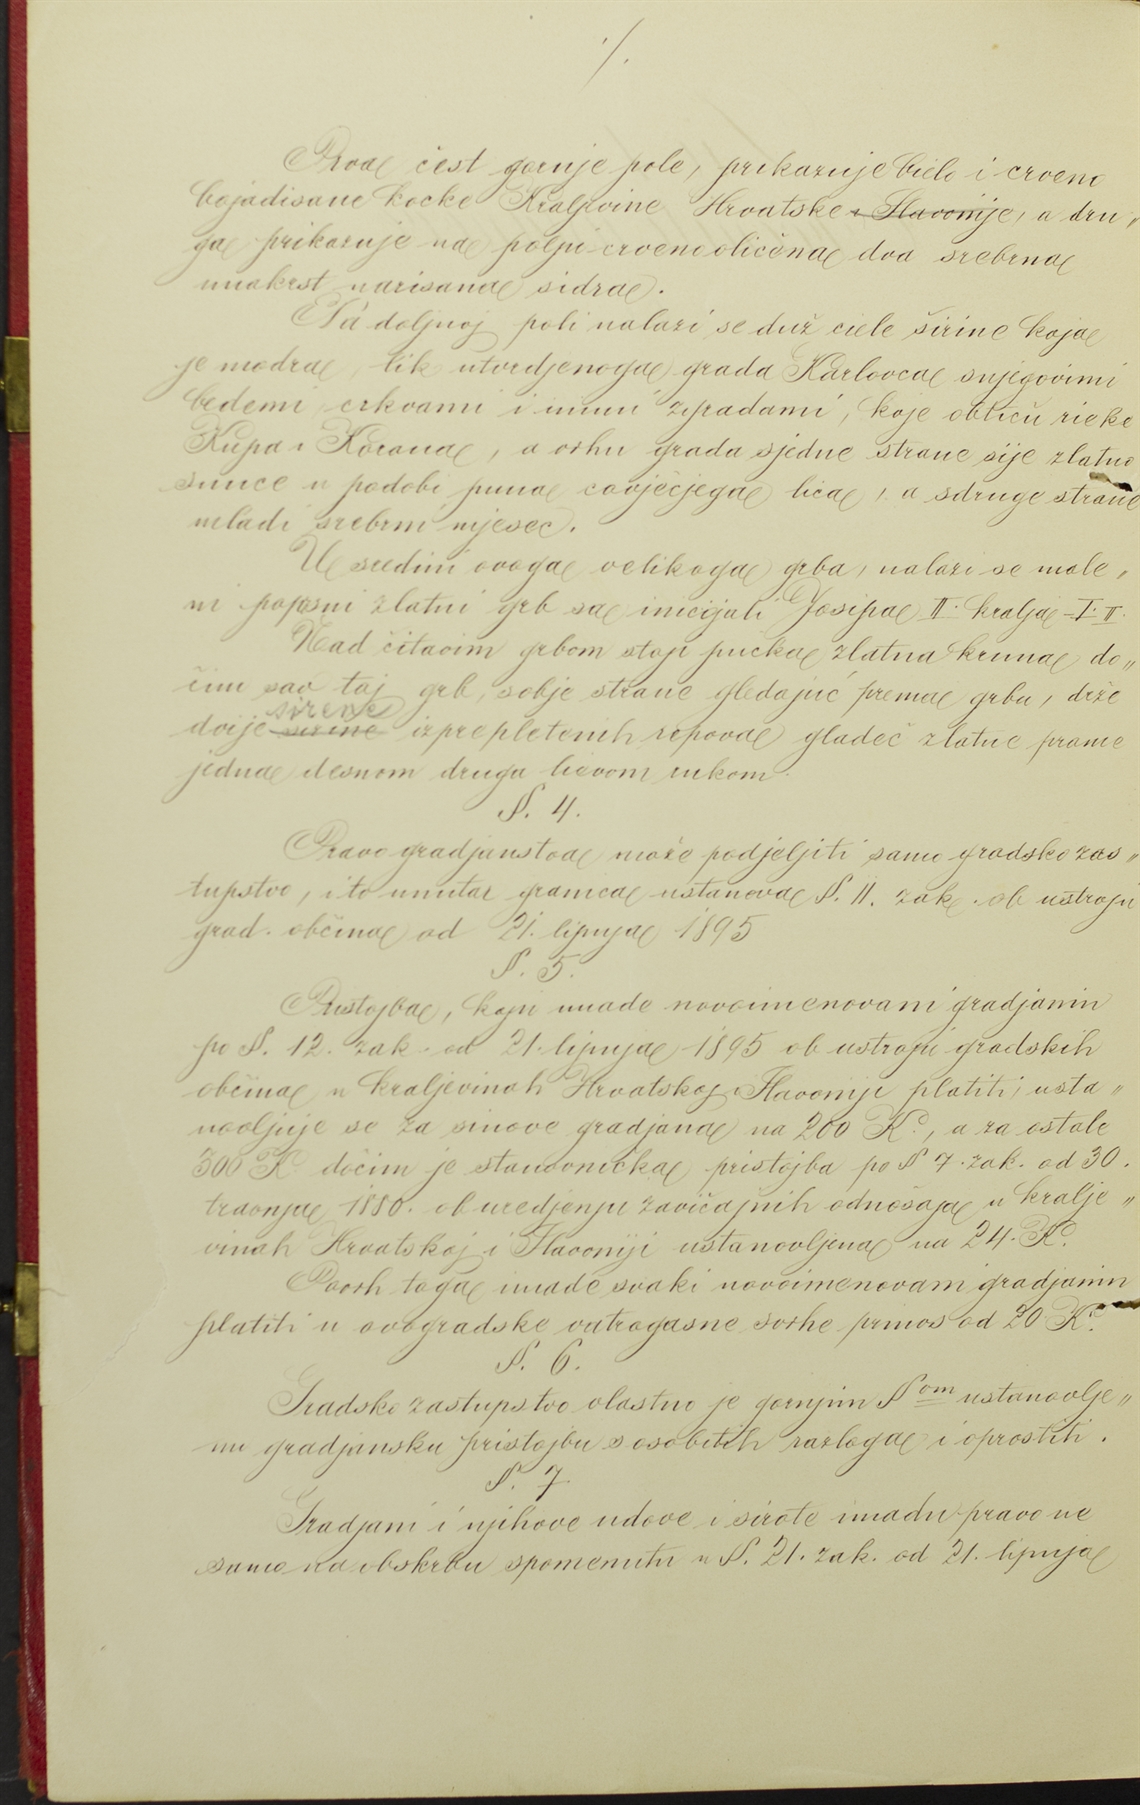 ·/.
Prva čest gornje pole, prikazuje bielo i crveno
bojadisane kocke Kraljevine Hrvatske i Slavonije, a dru„
ga prikazuje na polju crveno oličena dva srebrna
unakrst narisana sidra.
Na doljnoj poli nalazi se duž ciele širine koja
je modra, lik utvrdjenoga grada Karlovca snjegovimi
bedemi, crkvami i inimi zgradami, koje obtiču rieke
Kupa i Korana, a vrhu grada sjedne strane sije zlatno
sunce u podobi puna čovječjega lica, a sdruge strane
mladi srebrni mjesec.
U sredini ovoga velikoga grba, nalazi se male„
ni poprsni zlatni grb sa inicijali Josipa II. kralja I. II.
Nad čitavim grbom stoji pučka zlatna kruna do„
čim sav taj grb, sobje strane gledajuć prema grbu, drže
sirene
dvije sirine izprepletenih repova gladeć zlatne prame
jedna desnom druga lievom rukom.
§. 4.
Pravo gradjanstva može podjeljiti samo gradsko zas„
tupstvo, i to unutar granica ustanova §. 11. zak. ob ustroju
grad. občina od 21. lipnja 1895
§. 5.
Pristojba, koju imade novoimenovani gradjanin
po §. 12. zak. od 21. lipnja 1895 ob ustroju gradskih
občina u kraljevinah Hrvatskoj i Slavoniji platiti, usta„
novljuje se za sinove gradjana na 200 K., a za ostale
300 K. dočim je stanovnička pristojba po § 7. zak. od 30.
travnja 1880. ob uredjenju zavičajnih odnošaja u kralje„
vinah Hrvatskoj i Slavoniji ustanovljena na 24. K.
Povrh toga imade svaki novoimenovani gradjanin
platiti u ovogradske vatrogasne svrhe prinos od 20 K.
§. 6.
Gradsko zastupstvo vlastno je gornjim §om ustanovlje„
nu gradjansku pristojbu s osobitih razloga i oprostiti.
§. 7
Gradjani i njihove udove i sirote imadu pravo ne
samo na obskrbu spomenutu u §. 21. zak. od 21. lipnja